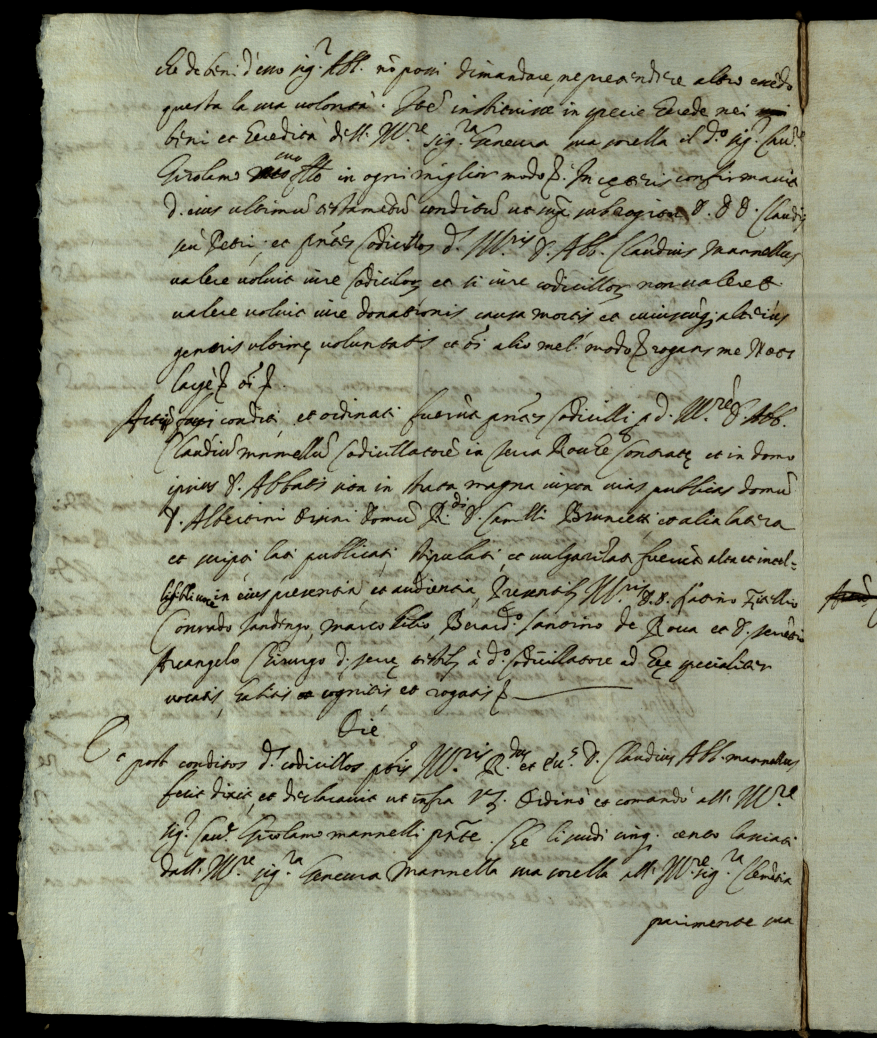 che de beni d'esso sig.r Abb. nõ possi dimandare, ne pretendere altro essẽdo
questa la sua volontà. Itẽ instituisce in specie herede nei
beni et heredità dell. Ill.re sig.ra Geneura sua sorella il d.o sig.r Cau.re
Girolamo suo in ogni miglior modo p. In ceteris confirmavit
d. eius ultimũ testamentũ conditũ ut s. sub rogitu D. Claudii
et p̃ntes Codicillos d. Ill.ris D. Abb. Claudius Mannellus
valere voluit iure codicilloꝝ et si iure codicilloꝝ non valeret
valere voluit iure donationis causa mortis et cuiuscũq; alterius
generis ultimę voluntatis et õi alio mel. modo p. rogans me Not.
conditi, et ordinati fuerũt p̃ntes codicilli p d. Ill.rẽ D. Abb.
Claudiũ mannellũ codicillatorẽ in terra Contratę et in domo
ipsius D. Abbatis sita in strata magna iuxta vias publicas domũ
D. Albertini Ursini domũ R.di D. Camilli et alia latera
et scripti lati publicati, stipulati, et vulgarizati fuerũt alta et intel=
ligibili voce in eius presentia, et audientia, Presentib. Ill. D.D.
Conrado Sandengo, marco Berard.o Santino de Roua et D.
Arcangelo Chirurgo d. terrę testib. à d.o Codicillatore ad hęc specialiter
vocatis, habitis cognitis, et rogatis p.
Die
Et post conditos d. codicillos p. Ill.ris R.dus et D. Claudius Abb. mannellus
fecit dixit, et declarauit ut infra vz. Ordinò et comandò all. Ill.re
sig.r Cau.r Girolamo mannelli p̃nte. Che li scudi cinq. cento lasciati
dall. Ill.re sig.ra Geneura Mannella sua sorella all. Ill.re sig.ra Clemẽtia
parimente sua